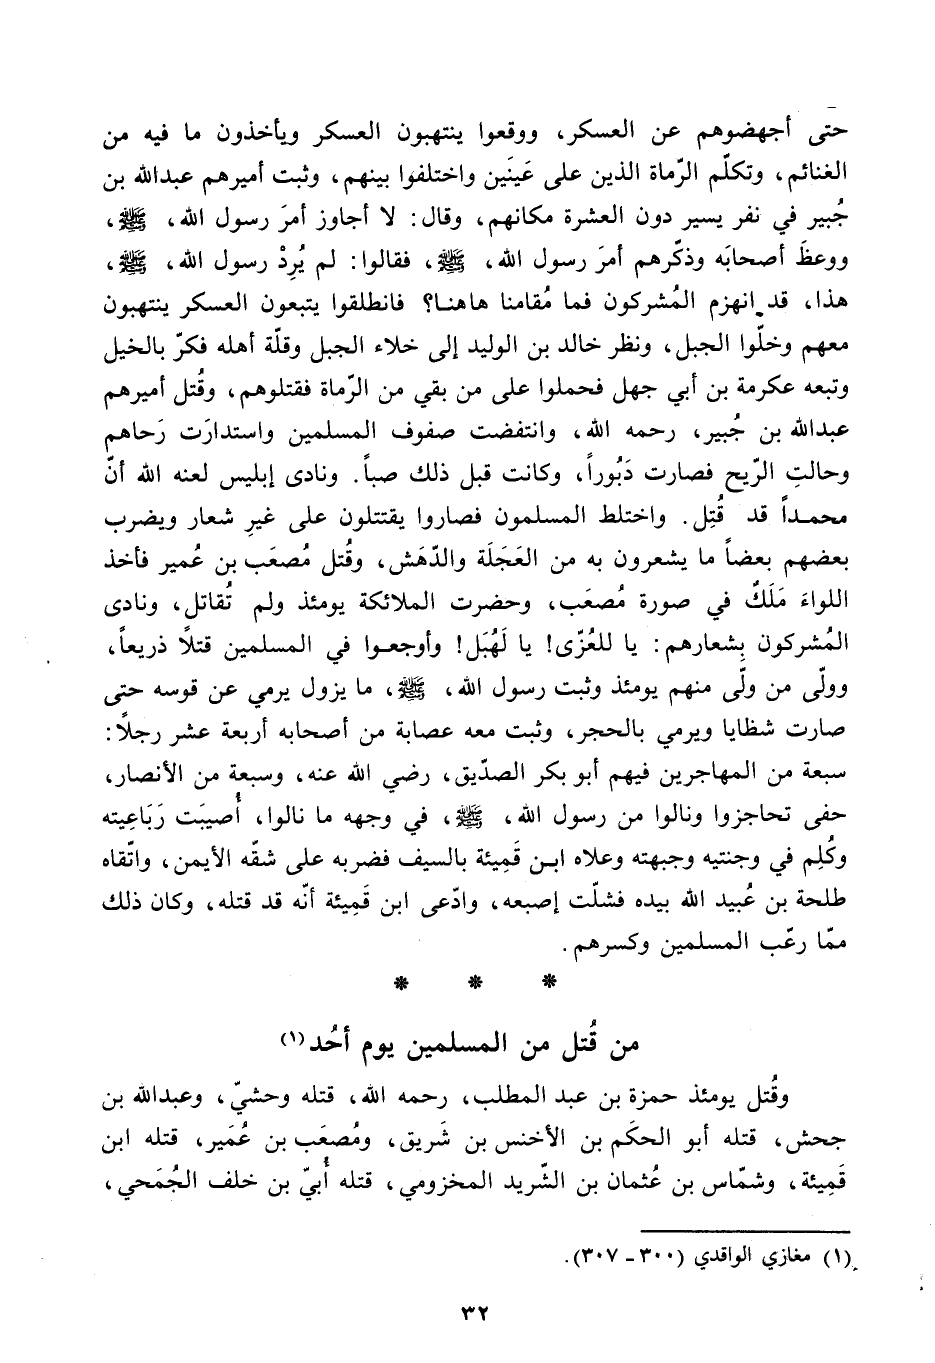 حتى أجهضوهم عن العسكر، ووقعوا ينتهبون العسكر ويأخذون ما فيه من
الغنائم، وتكلّم الرّماة الذين على عَينَين واختلفوا بينهم، وثبت أميرهم عبدالله بن
جُبير في نفر يسير دون العشرة مكانهم، وقال: لا أجاوز أمرَ رسول الله، ﷺ،
ووعظَ أصحابَه وذكّرهم أمرَ رسول الله، ﷺ، فقالوا: لم يُرِدْ رسول الله، ﷺ،
هذا، قد انهزم المُشركون فما مُقامنا هاهنا؟ فانطلقوا يتبعون العسكر ينتهبون
معهم وخلّوا الجبل، ونظر خالد بن الوليد إلى خلاء الجبل وقلّة أهله فكرّ بالخيل
وتبعه عكرمة بن أبي جهل فحملوا على من بقي من الرّماة فقتلوهم، وقُتل أميرهم
عبدالله بن جُبير، رحمه الله، وانتفضت صفوف المسلمين واستدارَت رَحاهم
وحالتِ الرّيح فصارت دَبُوراً، وكانت قبل ذلك صباً. ونادى إبليس لعنه الله أنّ
محمداً قد قُتِل. واختلط المسلمون فصاروا يقتتلون على غيرِ شعار ويضرب
بعضهم بعضاً ما يشعرون به من العَجَلَة والدّهَش، وقُتل مُصعَب بن عُمير فأخذ
اللواءَ مَلَكٌ في صورة مُصعَب، وحضرت الملائكة يومئذ ولم تُقاتل، ونادى
المُشركون بِشعارهم: يا للعُزّى! يا لَهُبَل! وأوجعوا في المسلمين قتلاً ذريعاً،
وولّى من ولّى منهم يومئذ وثبت رسول الله، ﷺ، ما يزول يرمي عن قوسه حتى
صارت شظايا ويرمي بالحجر، وثبت معه عصابة من أصحابه أربعة عشر رجلاً:
سبعة من المهاجرين فيهم أبو بكر الصدّيق، رضي الله عنه، وسبعة من الأنصار،
حفى تحاجزوا ونالوا من رسول الله، ﷺ، في وجهه ما نالوا، أُصيبَت رَبَاعِيته
وكُلِم في وجنتيه وجبهته وعلاه ابن قَمِيئة بالسيف فضربه على شقّه الأيمن، واتّقاه
طلحة بن عُبيد الله بيده فشلّت إصبعه، وادّعى ابن قَمِيئة أنّه قد قتله، وكان ذلك
ممّا رعّب المسلمين وكسرهم.
* * *
من قُتل من المسلمين يوم أُحُد(١)
وقُتل يومئذ حمزة بن عبد المطلب، رحمه الله، قتله وحشيّ، وعبدالله بن
جحش، قتله أبو الحكَم بن الأخنس بن شَريق، ومُصعَب بن عُمَير، قتله ابن
قَمِيئة، وشمّاس بن عُثمان بن الشّريد المخزومي، قتله أُبيّ بن خلف الجُمَحي،
(١) مغازي الواقدي (٣٠٠ - ٣٠٧).
٣٢